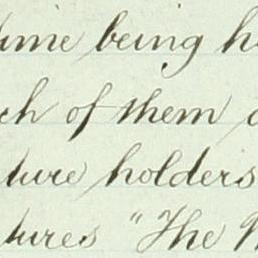 time being h
ch of them
ture holders
tures "The